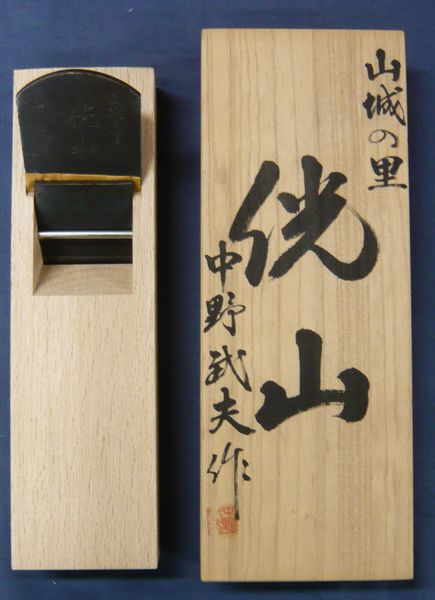 山城の里
侊山
中野武夫作
侊山